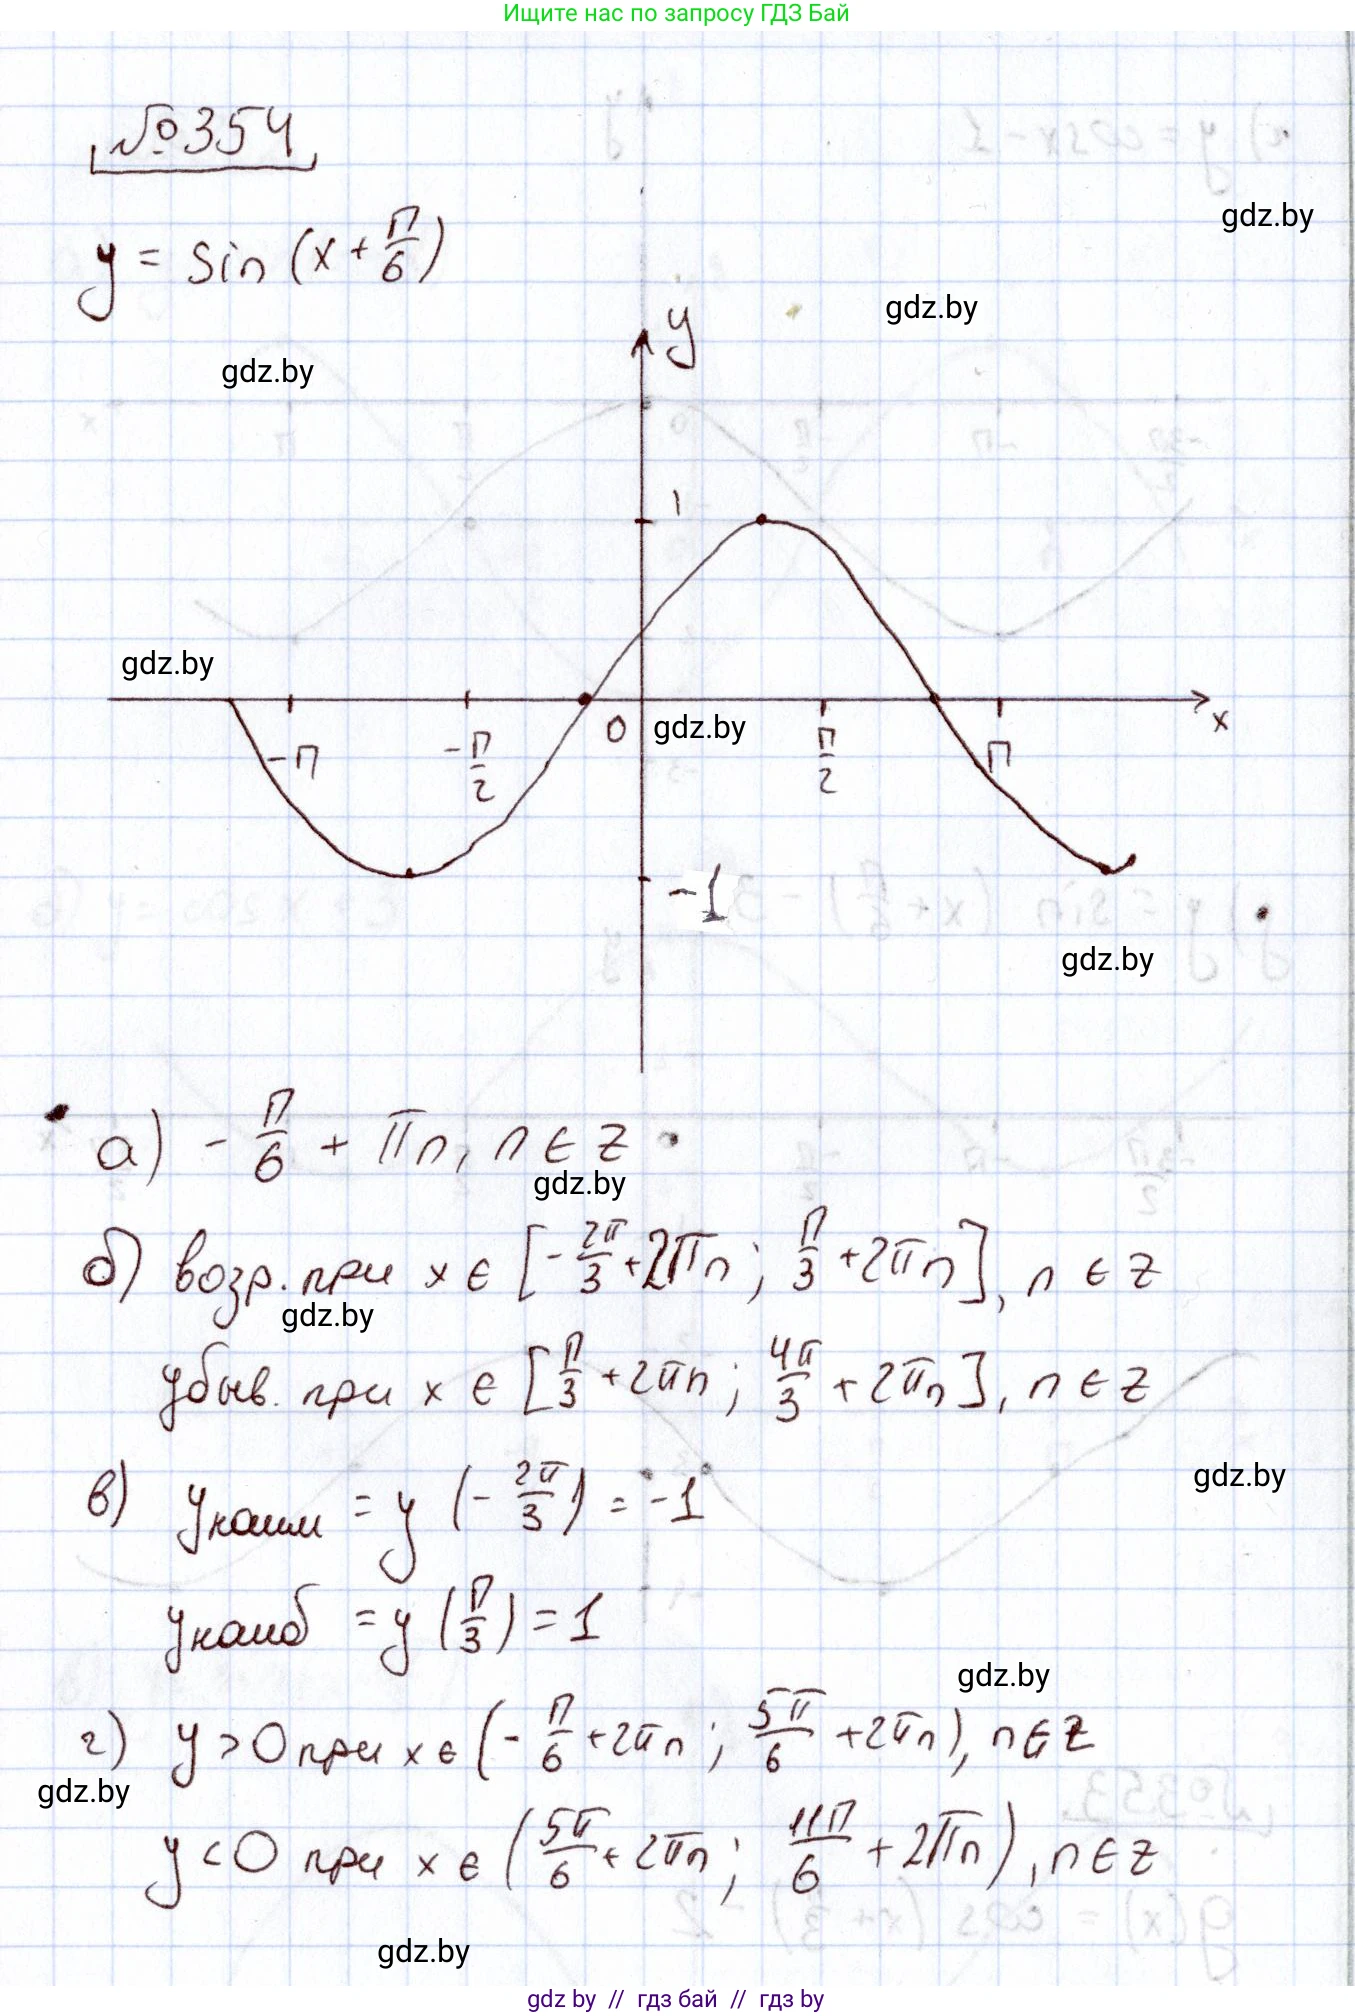 Ищите нас по запросу ГДЗ Бай
№354
gdz.by
y = sin (x + π/6)
gdz.by
y
gdz.by
1
gdz.by
0
gdz.by
x
-π
-π/2
π/2
π
-1
gdz.by
а) -π/6 + πn, n ∈ Z
gdz.by
б) возр. при x ∈ [-2π/3 + 2πn; π/3 + 2πn], n ∈ Z
gdz.by
убыв. при x ∈ [π/3 + 2πn; 4π/3 + 2πn], n ∈ Z
в) yнаим = y (-2π/3) = -1
gdz.by
yнаиб = y (π/3) = 1
gdz.by
г) y > 0 при x ∈ (-π/6 + 2πn; 5π/6 + 2πn), n ∈ Z
gdz.by
y < 0 при x ∈ (5π/6 + 2πn; 11π/6 + 2πn), n ∈ Z
gdz.by
gdz.by // гдз бай // гдз by